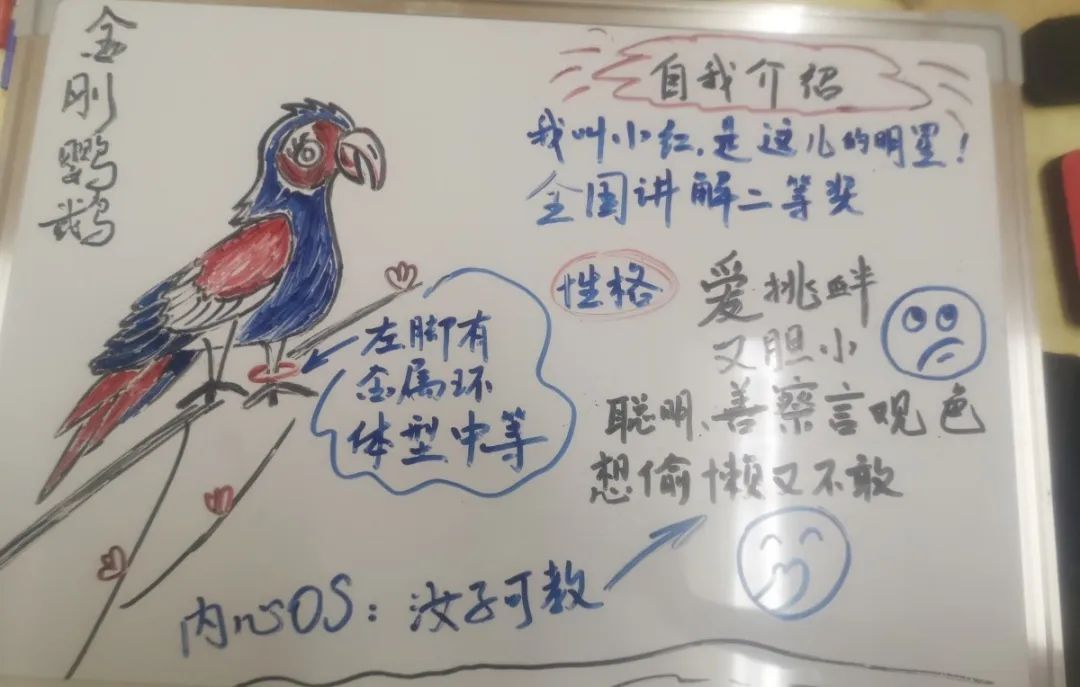 金刚鹦鹉
自我介绍
我叫小红,是这儿的明星!
全国讲解二等奖
性格
爱挑衅
又胆小
聪明、善察言观色
想偷懒又不敢
左脚有
金属环
体型中等
内心OS:汝子可教